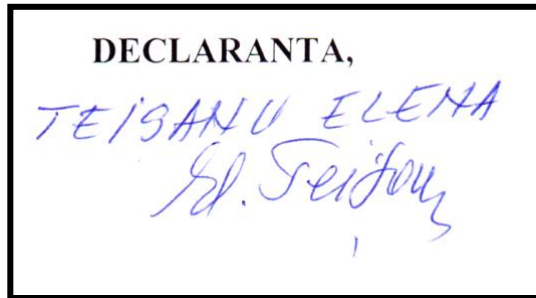 DECLARANTA,
TEISANU ELENA
El. Teisanu